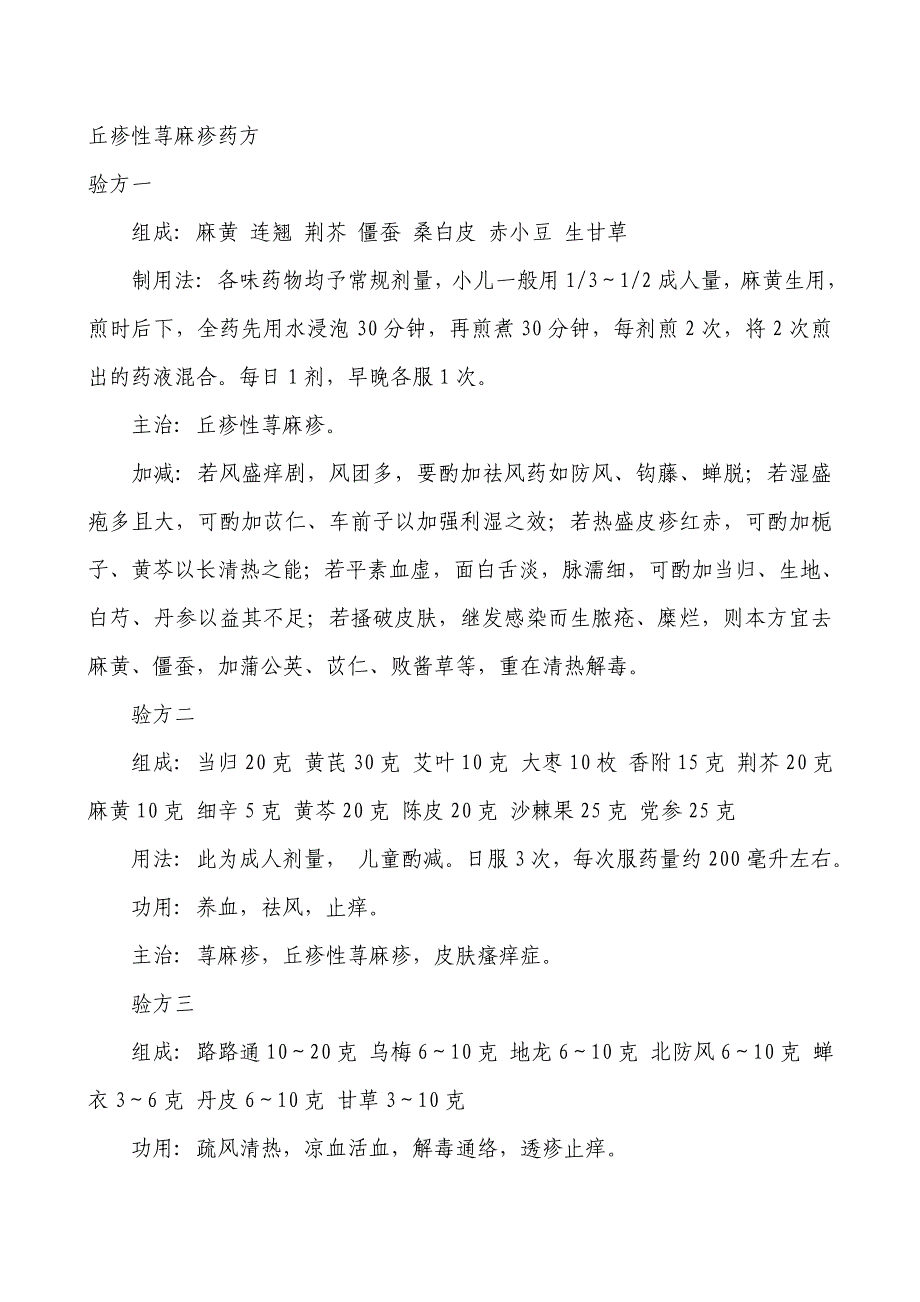 丘疹性荨麻疹药方
验方一
组成：麻黄 连翘 荆芥 僵蚕 桑白皮 赤小豆 生甘草
制用法：各味药物均予常规剂量，小儿一般用1/3~1/2成人量，麻黄生用，
煎时后下，全药先用水浸泡30分钟，再煎煮30分钟，每剂煎2次，将2次煎
出的药液混合。每日1剂，早晚各服1次。
主治：丘疹性荨麻疹。
加减：若风盛痒剧，风团多，要酌加祛风药如防风、钩藤、蝉脱；若湿盛
疱多且大，可酌加苡仁、车前子以加强利湿之效；若热盛皮疹红赤，可酌加栀
子、黄芩以长清热之能；若平素血虚，面白舌淡，脉濡细，可酌加当归、生地、
白芍、丹参以益其不足；若搔破皮肤，继发感染而生脓疮、糜烂，则本方宜去
麻黄、僵蚕，加蒲公英、苡仁、败酱草等，重在清热解毒。
验方二
组成：当归20克 黄芪30克 艾叶10克 大枣10枚 香附15克 荆芥20克
麻黄10克 细辛5克 黄芩20克 陈皮20克 沙棘果25克 党参25克
用法：此为成人剂量， 儿童酌减。日服3次，每次服药量约200毫升左右。
功用：养血，祛风，止痒。
主治：荨麻疹，丘疹性荨麻疹，皮肤瘙痒症。
验方三
组成：路路通10~20克 乌梅6~10克 地龙6~10克 北防风6~10克 蝉
衣3~6克 丹皮6~10克 甘草3~10克
功用：疏风清热，凉血活血，解毒通络，透疹止痒。